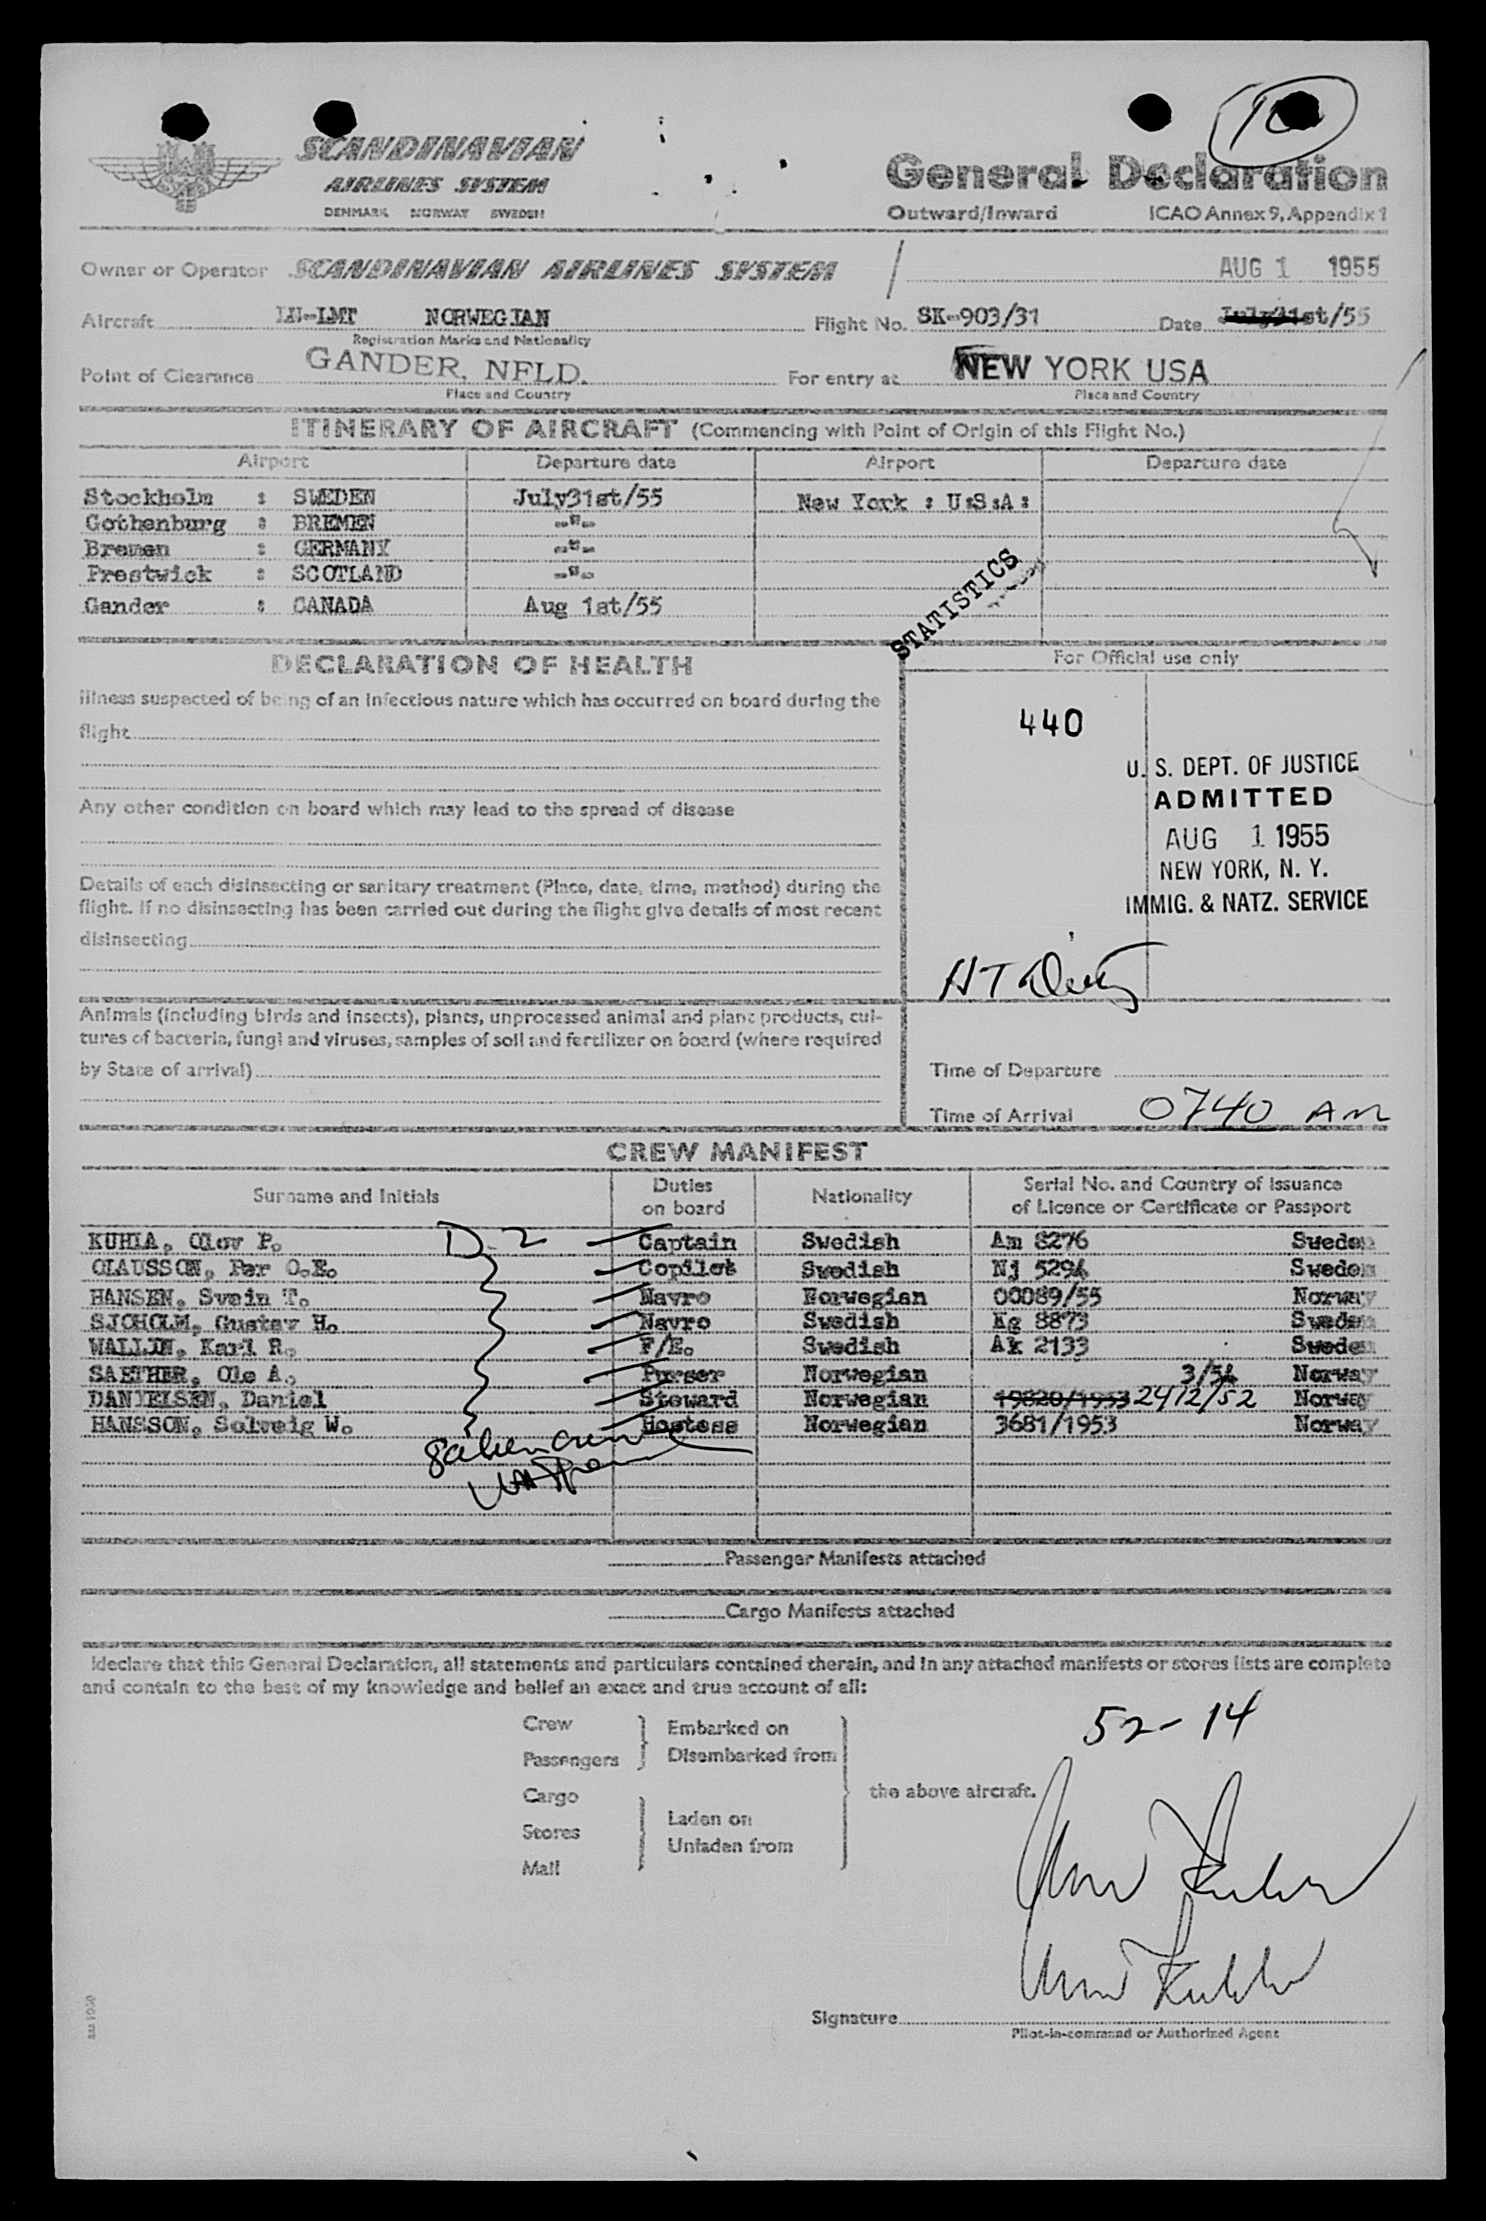 10
SCANDINAVIAN
AIRLINES SYSTEM
DENMARK NORWAY SWEDEN
General Declaration
Outward/Inward ICAO Annex 9, Appendix 1
Owner or Operator SCANDINAVIAN AIRLINES SYSTEM AUG 1 1955
Aircraft LN-LMT NORWEGIAN Flight No. SK-903/31 Date July31st/55
Registration Marks and Nationality
Point of Clearance GANDER, NFLD. For entry at NEW YORK USA
Place and Country Place and Country
ITINERARY OF AIRCRAFT (Commencing with Point of Origin of this Flight No.)
Airport Departure date Airport Departure date
Stockholm : SWEDEN July31st/55 New York : U:S:A:
Gothenburg : BREMEN -"-
Bremen : GERMANY -"-
Prestwick : SCOTLAND -"-
Gander : CANADA Aug 1st/55
STATISTICS
DECLARATION OF HEALTH
For Official use only
Illness suspected of being of an infectious nature which has occurred on board during the
flight
440
U. S. DEPT. OF JUSTICE
ADMITTED
AUG 1 1955
NEW YORK, N. Y.
IMMIG. & NATZ. SERVICE
Any other condition on board which may lead to the spread of disease
Details of each disinsecting or sanitary treatment (Place, date, time, method) during the
flight. If no disinsecting has been carried out during the flight give details of most recent
disinsecting
Animals (including birds and insects), plants, unprocessed animal and plant products, cul-
tures of bacteria, fungi and viruses, samples of soil and fertilizer on board (where required
by State of arrival)
Time of Departure
Time of Arrival 0740 AM
CREW MANIFEST
Surname and Initials Duties on board Nationality Serial No. and Country of Issuance of Licence or Certificate or Passport
KUHLA, Olov P. D-2 Captain Swedish Am 8276 Sweden
OLAUSSON, Per O.E. Copilot Swedish Nj 5294 Sweden
HANSEN, Svein T. Navro Norwegian 00089/55 Norway
SJOHOLM, Gustav H. Navro Swedish Kg 8873 Sweden
WALLIN, Karl R. F/E. Swedish Ak 2133 Sweden
SAETHER, Ole A. Purser Norwegian 3/54 Norway
DANIELSEN, Daniel Steward Norwegian 19820/1953 24/12/52 Norway
HANSSON, Solveig W. Hostess Norwegian 3681/1953 Norway
Passenger Manifests attached
Cargo Manifests attached
I declare that this General Declaration, all statements and particulars contained therein, and in any attached manifests or stores lists are complete
and contain to the best of my knowledge and belief an exact and true account of all:
52-14
Crew
Passengers
Embarked on
Disembarked from
Cargo
Stores
Mail
Laden on
Unladen from
the above aircraft.
Signature
Pilot-in-command or Authorized Agent